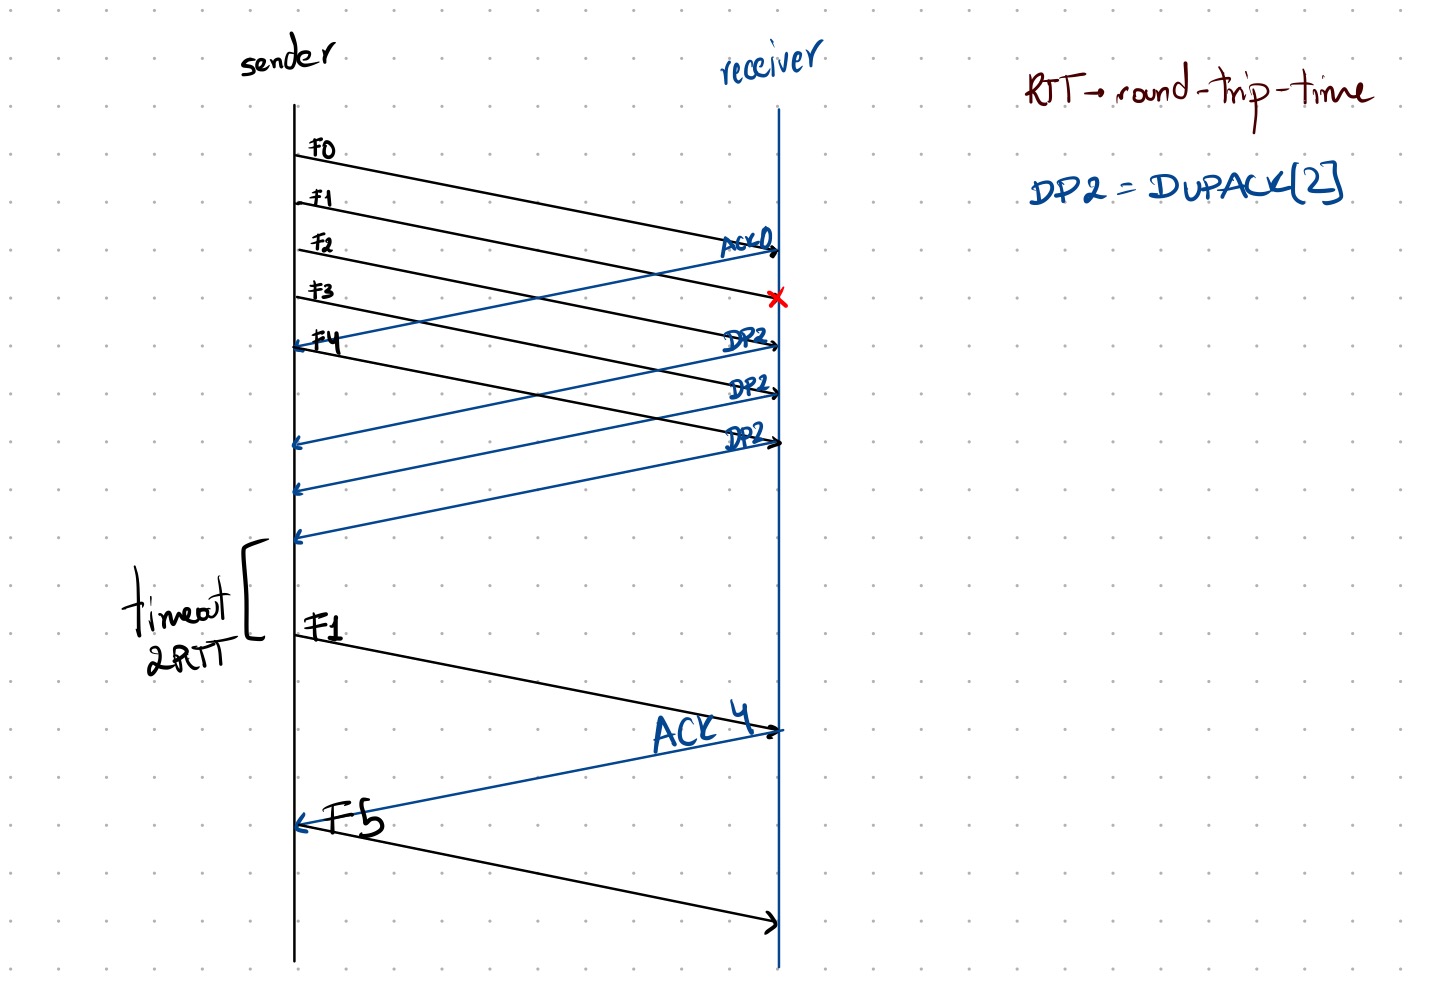 sender
receiver
RTT → round-trip-time
DP2 = DUPACK[2]
F0
F1
F2
ACK0
F3
F4
DP2
DP2
DP2
timeout
2RTT
F1
ACK 4
F5